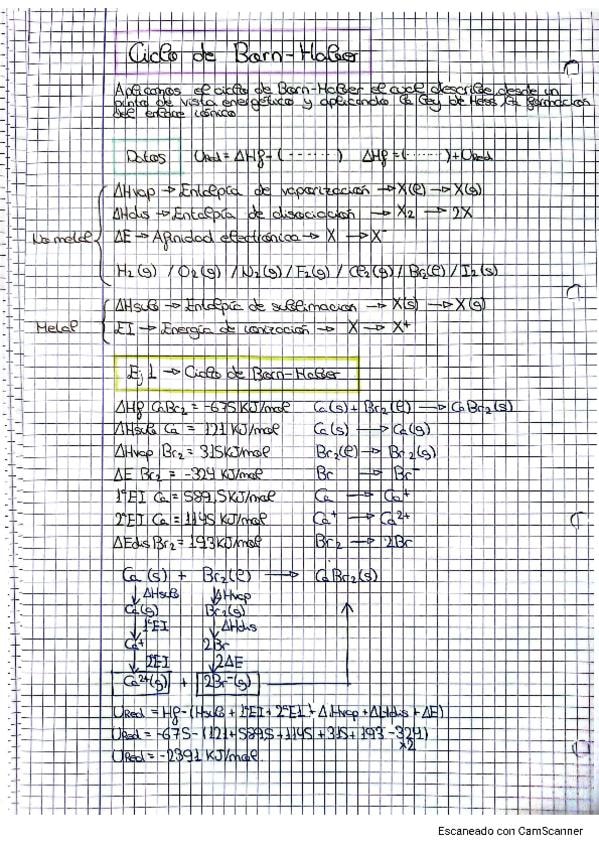 Ciclo de Born-Haber
Aplicamos el ciclo de Born-Haber el cual describe desde un
punto de vista energético y aplicando la ley de Hess, la formación
del enlace iónico
Datos URed = ΔHf - (--------) ΔHf = (-------) + URed
ΔHvap → Entalpía de vaporización → X(l) → X(g)
ΔHdis → Entalpía de disociación → X₂ → 2X
No metal
ΔE → Afinidad electrónica → X → X⁻
H₂(g) / O₂(g) / N₂(g) / F₂(g) / Cl₂(g) / Br₂(l) / I₂(s)
ΔHsub → Entalpía de sublimación → X(s) → X(g)
Metal
EI → Energía de ionización → X → X⁺
Ej 1 → Ciclo de Born-Haber
ΔHf CaBr₂ = -675 KJ/mol Ca(s) + Br₂(l) → CaBr₂(s)
ΔHsub Ca = 121 KJ/mol Ca(s) → Ca(g)
ΔHvap Br₂ = 315 KJ/mol Br₂(l) → Br₂(g)
ΔE Br₂ = -324 KJ/mol Br → Br⁻
1ªEI Ca = 589,5 KJ/mol Ca → Ca⁺
2ªEI Ca = 1145 KJ/mol Ca⁺ → Ca²⁺
ΔEdis Br₂ = 193 KJ/mol Br₂ → 2Br
Ca(s) + Br₂(l) → CaBr₂(s)
↓ΔHsub ↓ΔHvap
Ca(g) Br₂(g)
↓1ªEI ↓ΔHdis
Ca⁺ 2Br
↓2ªEI ↓2ΔE
Ca²⁺(g) + 2Br⁻(g)
URed = Hf - (Hsub + 1ªEI + 2ªEI + ΔHvap + ΔHdis + ΔE)
URed = -675 - (121 + 589,5 + 1145 + 315 + 193 - 324)
x2
URed = -2391 KJ/mol.
Escaneado con CamScanner